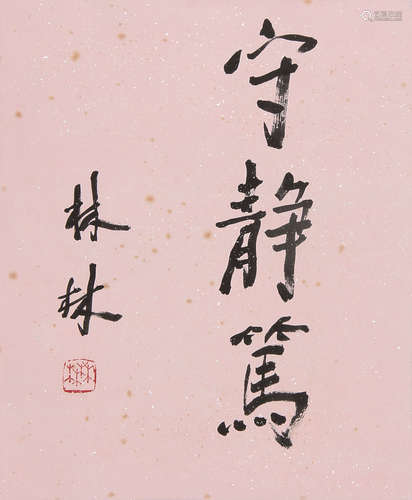 守静篤
林林